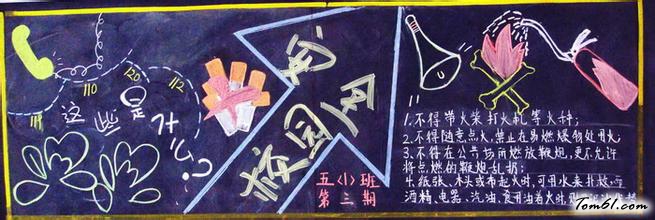 119
110
120
112
这些是什么?
校园
五(1)班
第三期
1.不得带火柴打火机等火种;
2.不得随意点火,禁止在易燃物处用火
3.不得在公共场所燃放鞭炮,更不允许
将点燃的鞭炮乱扔;
4.纸张、木头或布起火时,可用水来扑救,而
酒精、电器、汽油、食用油着火时,
Tom61.com